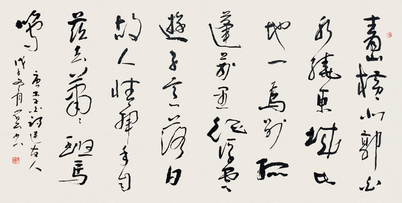 青山横北郭白
水繞東城此
地一為别孤
蓬萬里征浮雲
遊子意落日
故人情揮手自
兹去蕭蕭班馬
鳴
唐李白詩送友人